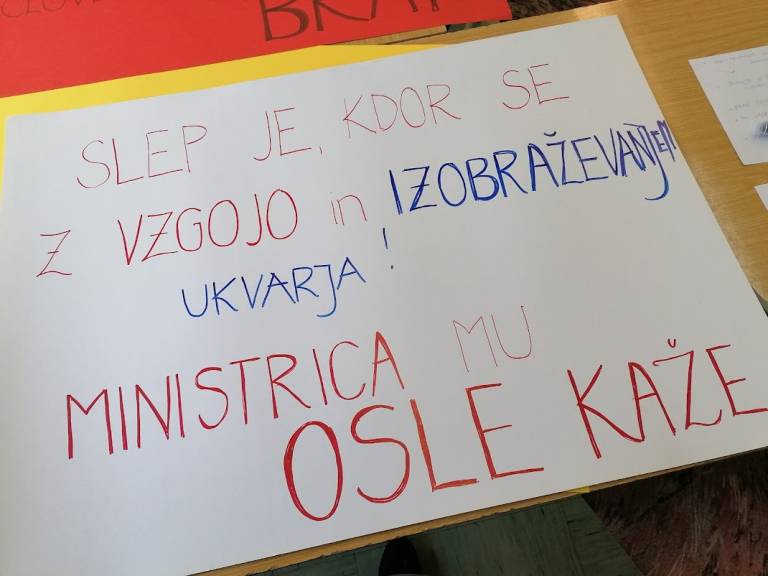 SLEP JE, KDOR SE
Z VZGOJO in IZOBRAŽEVANJEM
UKVARJA!
MINISTRICA MU
OSLE KAŽE